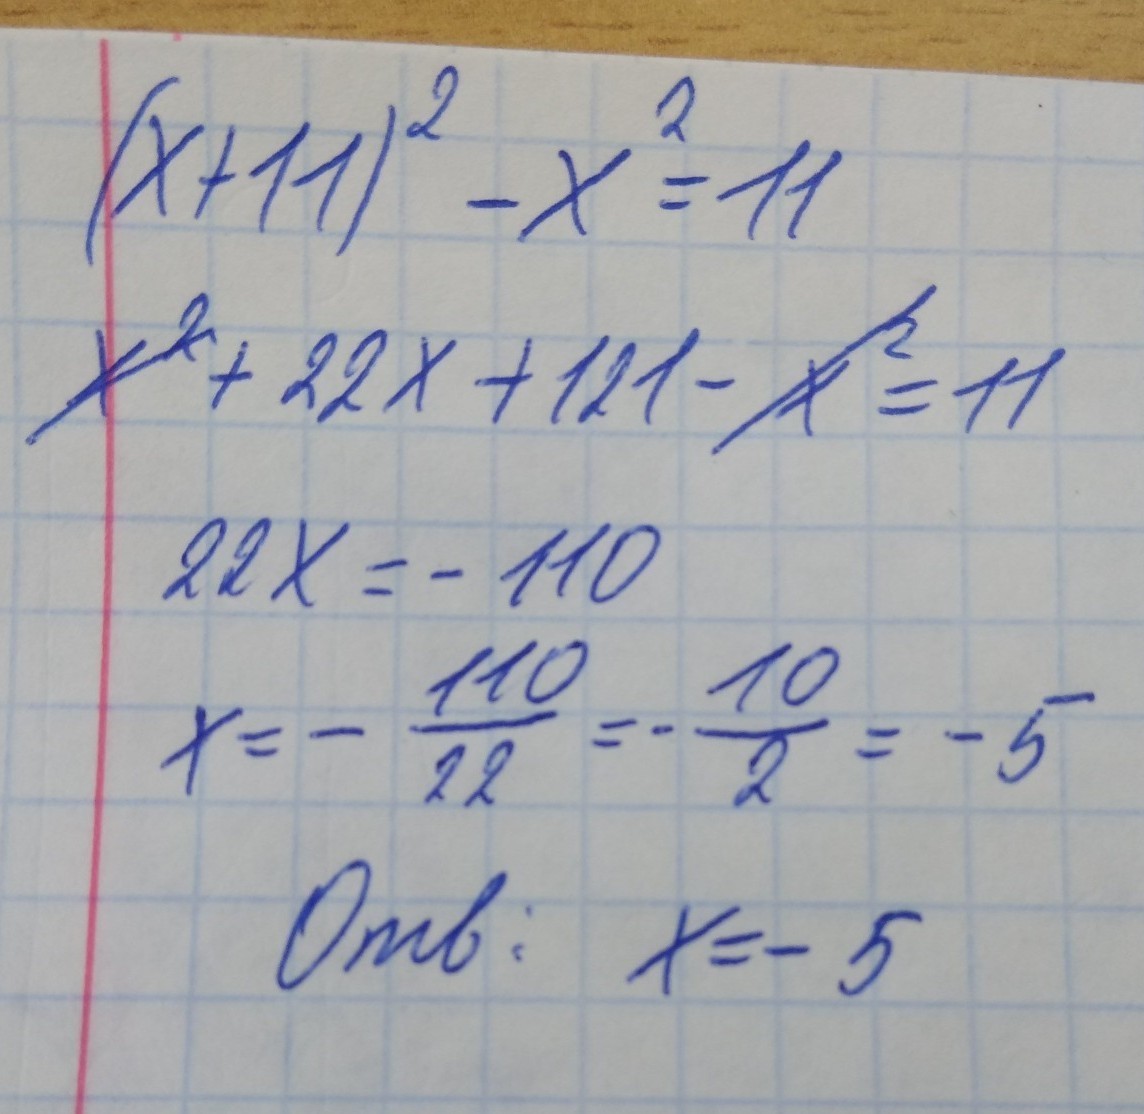 (x+11)² - x² = 11
x² + 22x + 121 - x² = 11
22x = - 110
x = - 110/22 = - 10/2 = - 5
Отв: x = - 5